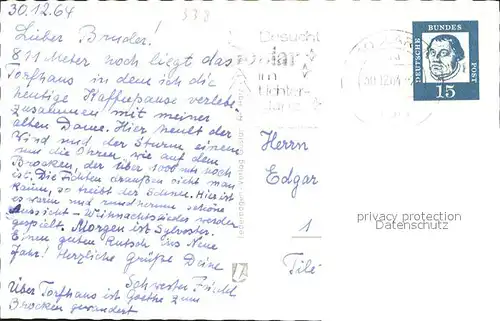 30.12.64
538
Lieber Bruder!
811 Meter hoch liegt das
Torfhaus in dem ich die
heutige Kaffeepause verlebe
zusammen mit meiner
alten Dame. Hier heult der
Wind und der Sturm einem
um die Ohren, wie auf dem
Brocken, der über 1000 m hoch
ist. Die Fichten draußen sieht man
kaum, so treibt der Schnee. Hier ist
es warm und rundherum schöne
Aussicht - Weihnachtslieder werden
gespielt. Morgen ist Sylvester.
Einen guten Rutsch ins Neue
Jahr! Herzliche Grüße Deine
Schwester Friedel
Über Torfhaus ist Goethe zum
Brocken gewandert
Besucht
im
Lichter-
DEUTSCHE BUNDES POST
15
Herrn
Edgar
1
privacy protection
Datenschutz